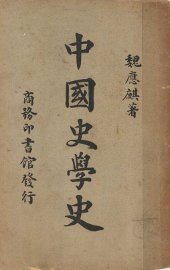 魏應麒著
中國史學史
商務印書館發行